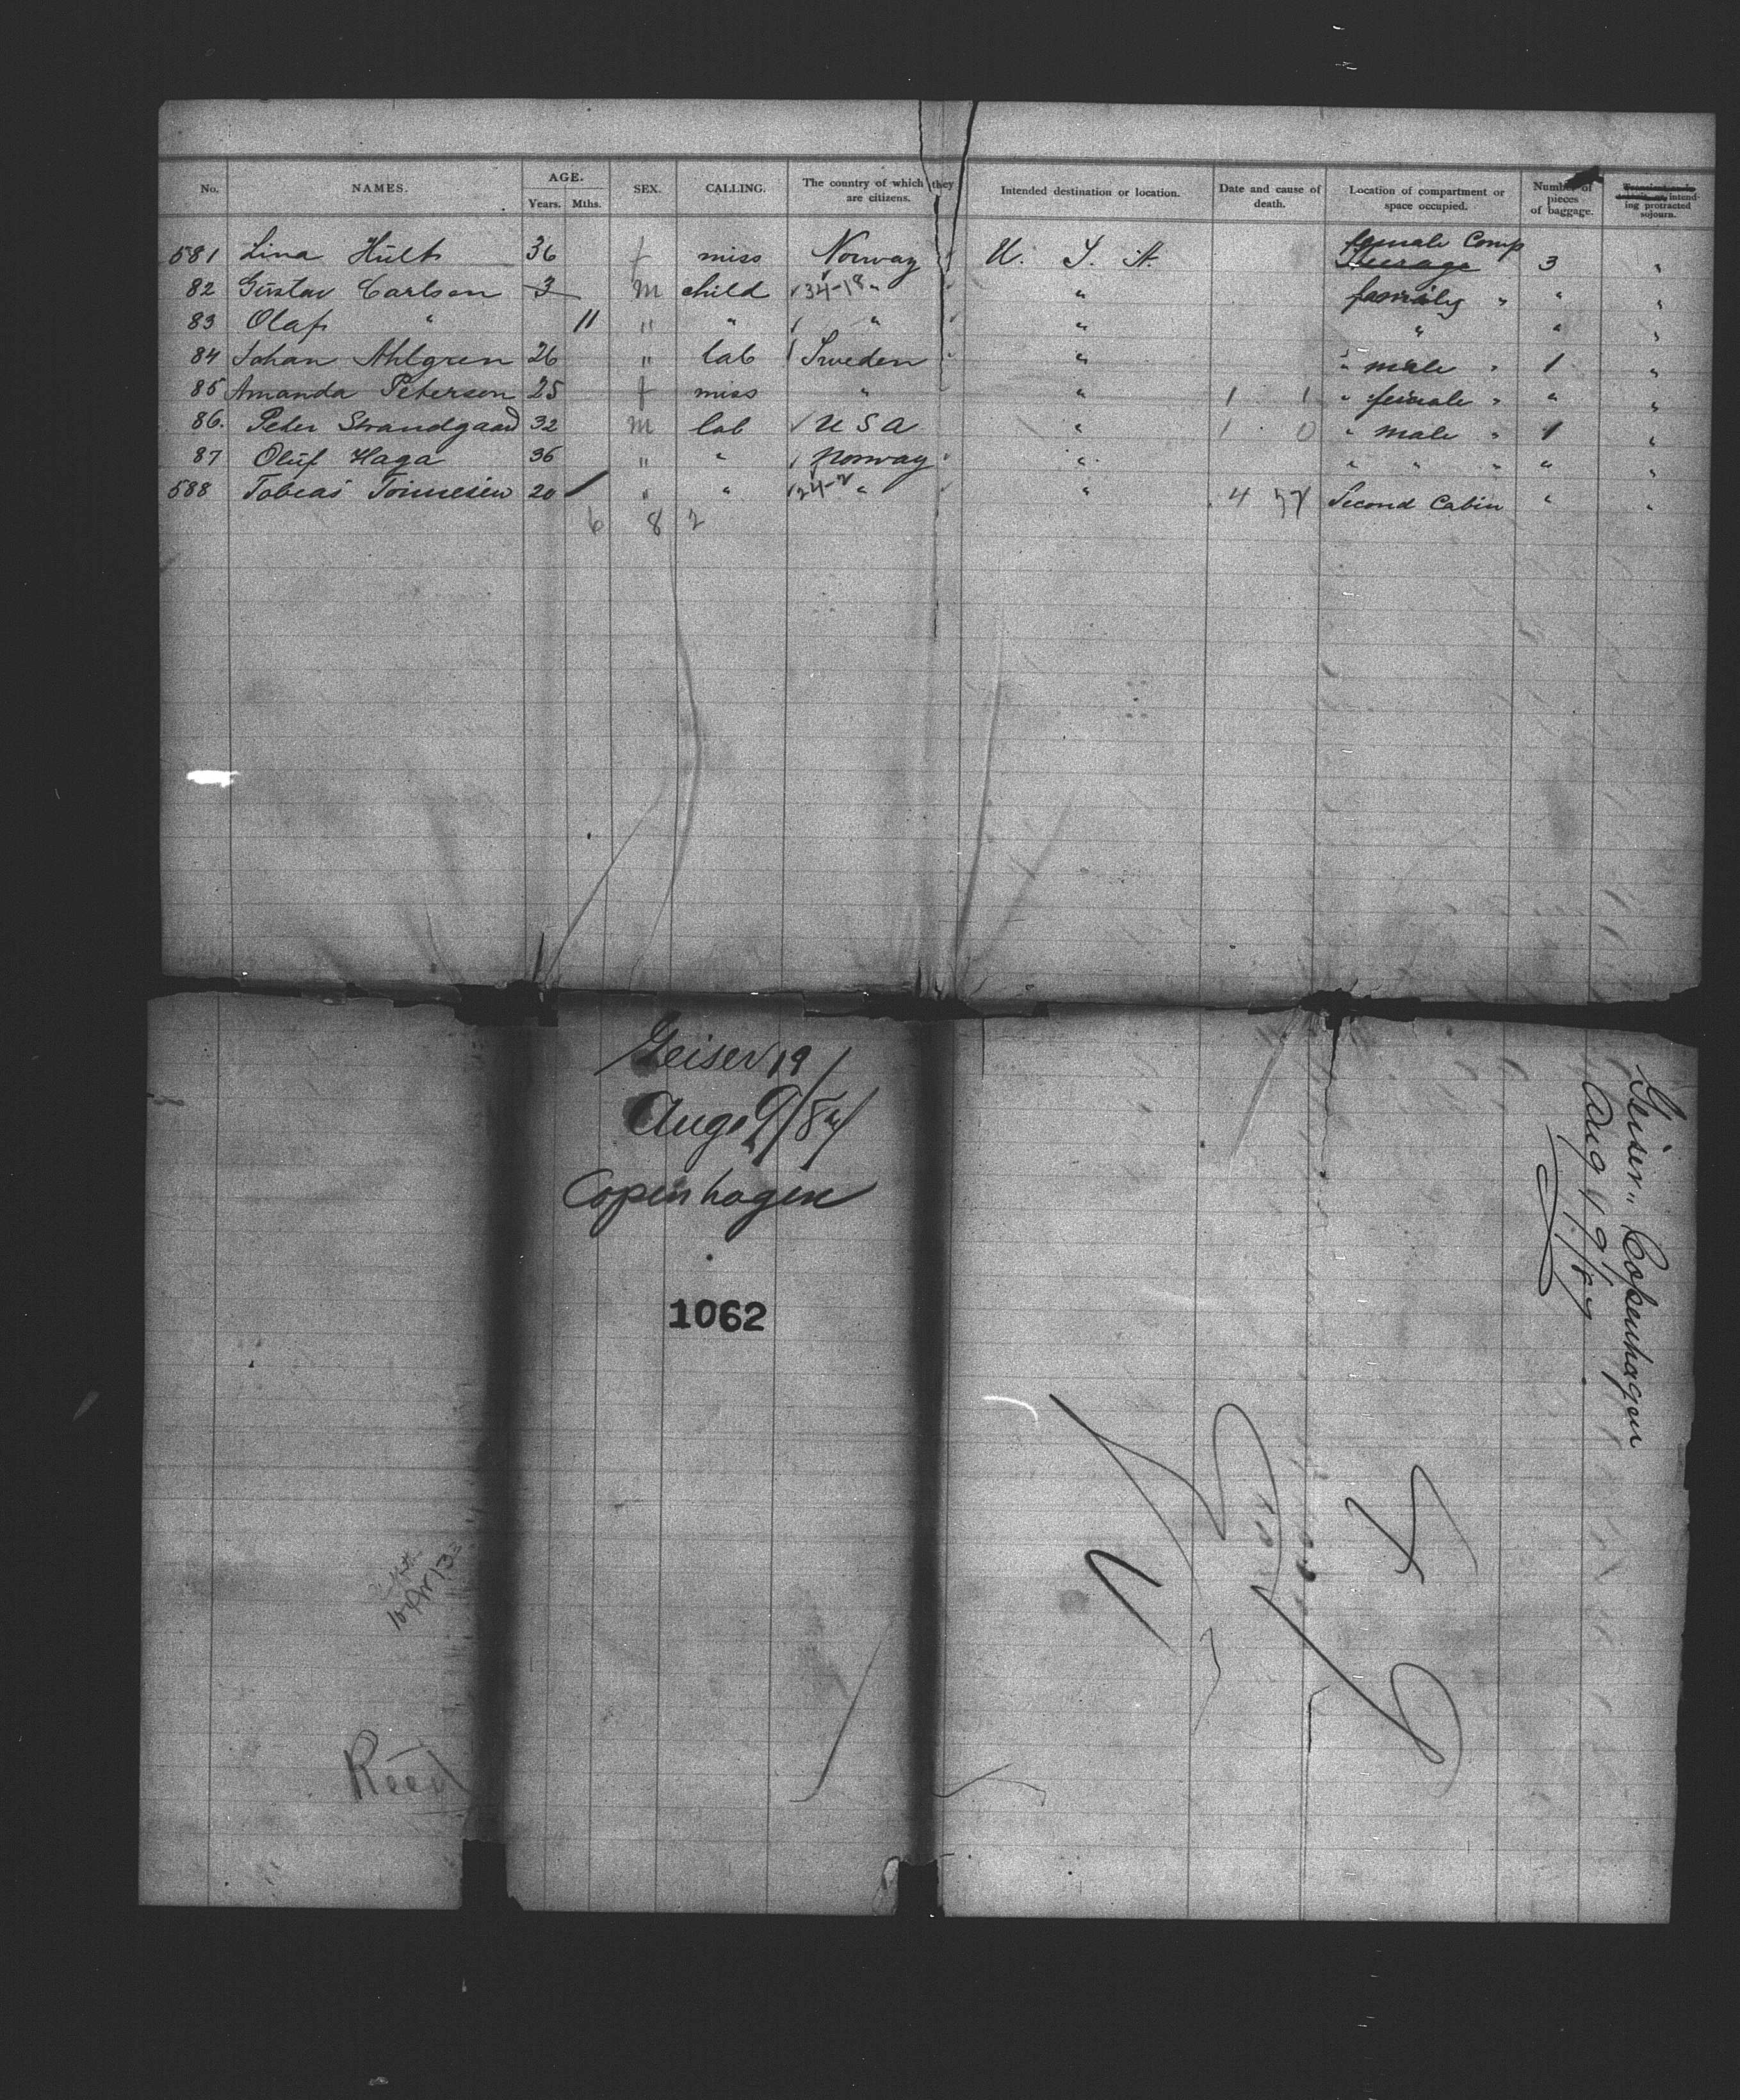 No. NAMES. AGE. Years. Mths. SEX. CALLING. The country of which they are citizens. Intended destination or location. Date and cause of death. Location of compartment or space occupied. Number of pieces of baggage. intending protracted sojourn.
581 Lina Hült 36 f miss Norway U. S. A. female Comp Steerage 3 "
82 Gustav Carlson 3 m child 34-18 " " family " " "
83 Olaf " 11 " " " " " " "
84 Johan Ahlgren 26 " lab Sweden " " male " 1 "
85 Amanda Peterson 25 f miss " " 1 1 " female " " "
86. Peter Strandgaard 32 m lab USA " 1 0 " male " 1 "
87 Oluf Haga 36 " " Norway " " " " " "
588 Tobias Tonnesen 20 " " 24-2 " " 4 57 Second Cabin " "
6 8 2
Geiser 19
Aug 9/87
Copenhagen
1062
Geiser" Copenhagen
Aug 19/87